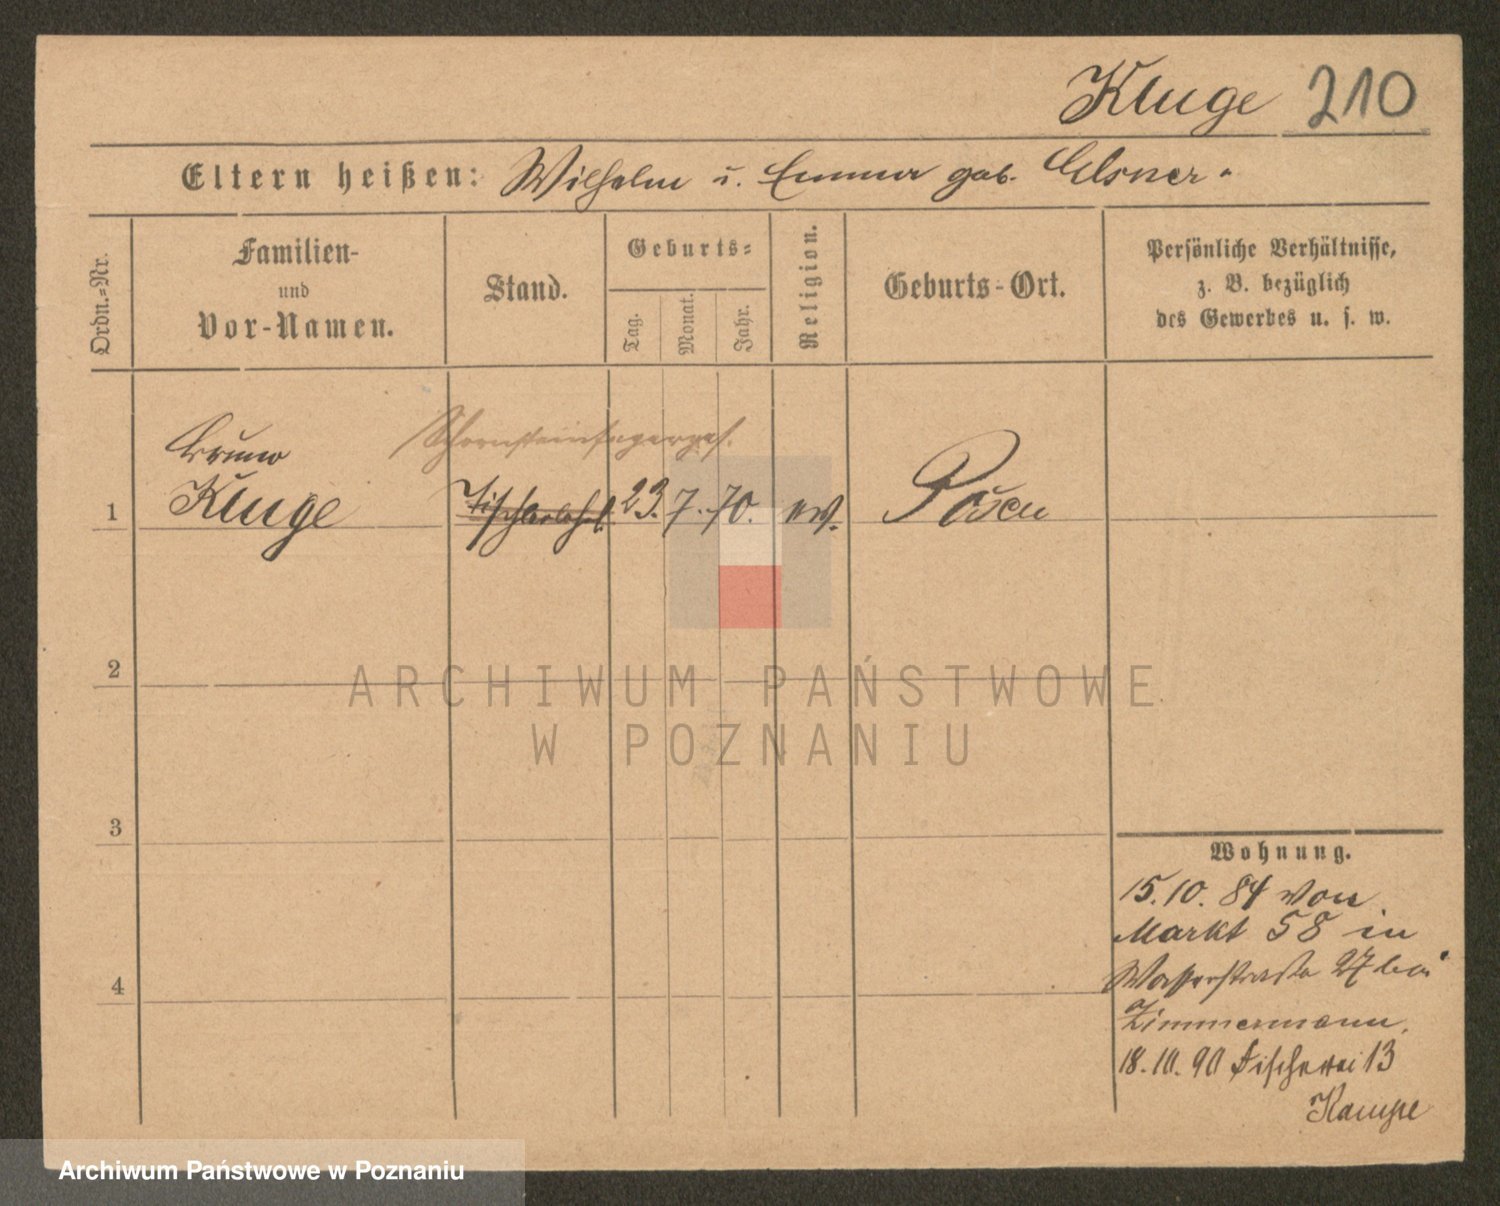 Kluge 210
Eltern heißen: Wilhelm u. Emma geb. Elsner.
Ordn.=Nr.
Familien-
und
Vor-Namen.
Stand.
Geburts=
Tag.
Monat.
Jahr.
Religion.
Geburts-Ort.
Persönliche Verhältnisse,
z. B. bezüglich
des Gewerbes u. s. w.
Schornsteinfegerges.
Bruno
1 Kluge Tischlerlehrl. 23. 7. 70. ev. Posen
2
3
4
Wohnung.
15. 10. 84 von
Markt 58 in
Wasserstraße 27 bei
Zimmermann.
18. 10. 90 Fischerei 13
Kampe
ARCHIWUM PAŃSTWOWE
W POZNANIU
Archiwum Państwowe w Poznaniu